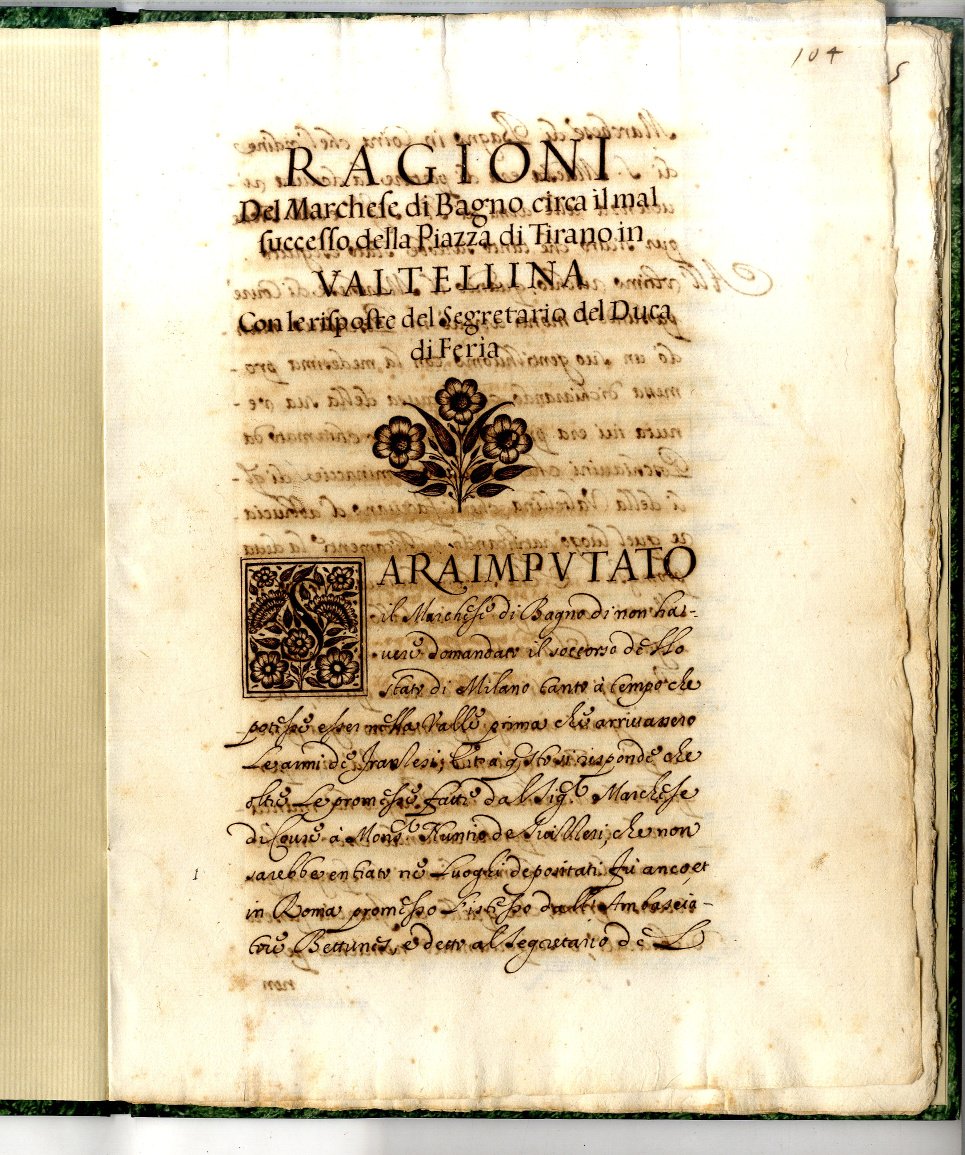 104
5
RAGIONI
Del Marchese di Bagno circa il mal
successo della Piazza di Tirano in
VALTELLINA
Con le risposte del Segretario del Duca
di Feria
SARA IMPVTATO
il Marchese di Bagno di non ha-
uere domandato il soccorso dello
stato di Milano tanto à tempo che
potesse esser nella Valle prima che arriuassero
Le armi de francesi; à q.sto si risponde che
oltre Le promesse fatte dal Sig.r Marchese
di Couure à Mons.r Nuntio de Suizzeri, che non
sarebbe entrato ne Luoghi depositati. fù anco, et
in Roma promesso L'istesso dalli Ambascia-
tore Bettunes, e detto al segretario de L
1
non